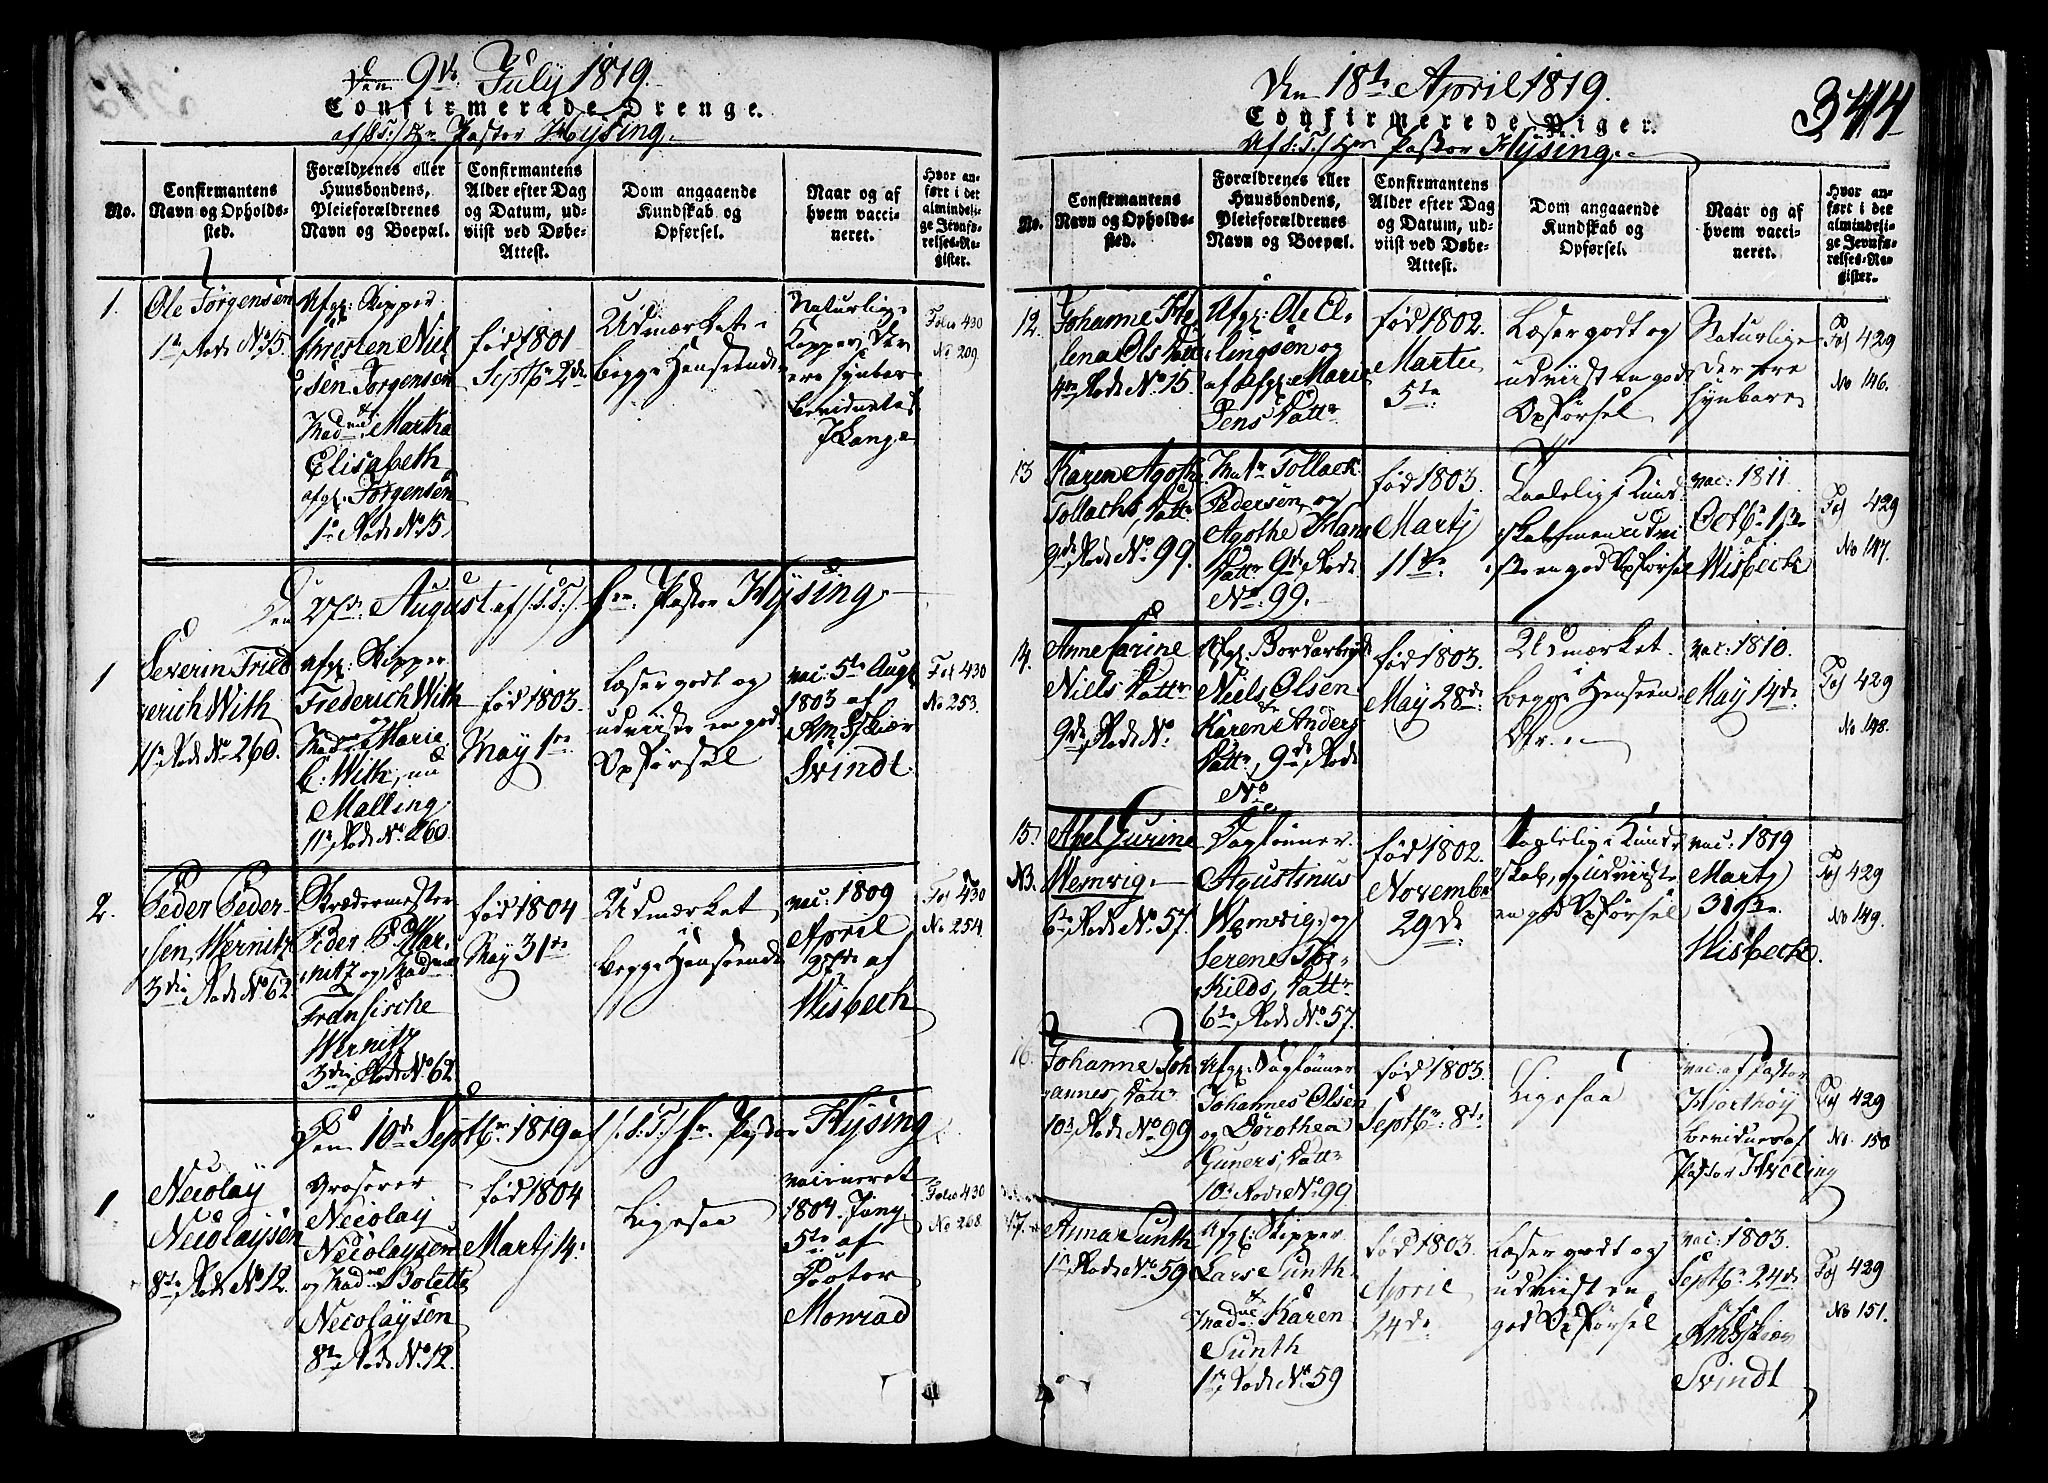 Den 9de July 1819.
Confirmerede Drenge.
af /S:T:/ Hr Pastor Hysing.
No.
Confirmantens
Navn og Opholds-
sted.
Forældrenes eller
Huusbondens,
Pleieforældrenes
Navn og Boepæl.
Confirmantens
Alder efter Dag
og Datum, ud-
viist ved Døbe-
Attest.
Dom angaaende
Kundskab og
Opførsel.
Naar og af
hvem vacci-
neret.
Hvor an-
ført i det
almindeli-
ge Jevnfø-
relses-Re-
gister.
1.
Ole Jørgensen
1te Rode No 15.
Afgl: Skipper
Chresten Niel
sen Jørgensen
Mad: Martha
Elisabeth
afgl: Jørgensen
1te Rode No 15
født 1801
Septbr 2de
Udmærket i
begge Henseende
Naturlige
Kopper; der
ere synbare
bevidnet af
Lange
Folio 430
No 209.
Den 27de August af /S:T:/ Hr. Pastor Hysing.
1
Severin Fried
erich With
11te Rode No 260.
Afgl: Skipper
Frederich With
Mad: Marie
C: With, nu
Malling
11te Rode No 260.
født 1803.
May 1te
Læser godt og
udviiste en god
Opførsel
vac: 5te Augt
1803 af
Am Skier
Svindt.
Fol 430
No 253.
2.
Peder Peder-
sen Wernitz
3die Rode No 62
Skrædermester
Peder P
nitz og Madme
Fransische
Wernitz
3die Rode No 62
født 1804
May 31te
Udmærket
i
begge Henseende
vac: 1809
April
27de af
Wisbech
Fol 430
No 254.
Den 10de Septbr 1819 af /:S:T:/ Hr. Pastor Hysing
1
Necolay
Necolaysen
8te Rode No 12.
Grosserer
Necolay
Necolaysen
og Madme Bolette
Necolaysen
8te Rode No 12.
født 1804
Martj 14:
Ligesaa
vacineret
1804. Juny
5te af
Doctor
Monrad
Folio 430
No 268.
Den 18te April 1819.
344
Confirmerede Piger.
Af /S:T:/ Hr Pastor Hysing.
No.
Confirmantens
Navn og Opholds-
sted.
Forældrenes eller
Huusbondens,
Pleieforældrenes
Navn og Boepæl.
Confirmantens
Alder efter Dag
og Datum, ud-
viist ved Døbe-
Attest.
Dom angaaende
Kundskab og
Opførsel.
Naar og af
hvem vacci-
neret.
Hvor an-
ført i det
almindeli-
ge Jevnfø-
relses-Re-
gister.
12.
Johanne He
lena Ols Dattr
4de Rode No 15.
Afgl: Ole El-
lingsen og
af Afgl: Marie
Jens Dattr
født 1802.
Martii
5te
Læser godt og
udviist en god
Opførsel
Naturlige
der ere
synbare
Fol 429
No 146.
13
Karen Agothe
Tollachs Dattr
9de Rode No 99.
Matr Tollack
Pedersen, og
Agothe Hans
Dattr 9de Rode
No: 99.
født 1803.
Martj
11te
Kund-
skab, men udvi
ste en god Opførsel
vac: 1811
Octbr 1ste
af
Wisbech
Fol 429
No 147.
14.
Anne Carine
Niels Dattr
9de Rode No
Afgl: Bordarbeyd
Niels Olsen
Karen Anders
Dattr, 9de Rode
No
født 1803.
May 28de
Udmærket
i
begge Henseen
der.
vac: 1810.
May 14de
Fol 429
No 148.
15.
NB.
Abel Gurine
Wemvig.
6te Rode No 57.
Daglønner
Agustinus
Wemvig, og
Serene Tør-
kilds, Dattr
6te Rode No 57.
født 1802.
Novembr
29de
Kund-
skab, og udviiste
en god Opførsel
vac: 1819
Martj
31te
Wisbech.
Fol 429
No 149.
16.
Johanne Joh
annes, Dattr
10de Rode No 99
Afgl: Daglønner
Johannes Olsen
og Dorothea
Guners, Dattr
10de Rode No 99.
født 1803.
Septbr 8de
Ligesaa
vac: af Pastor
Hjorthøy
bevidnes af
Pastor Hveling
Fol 429
No. 150
17.
Anna Sunth
1te Rode No 59
Afgl: Skipper
Lars Sunth
Madme Karen
Sunth
1te Rode No 59
født 1803.
April
24de
Læser godt og
udviist en
god Opførsel
vac: 1803.
Septbr 24de
af
Am Skier
Svindt
Fol 429
No 151.